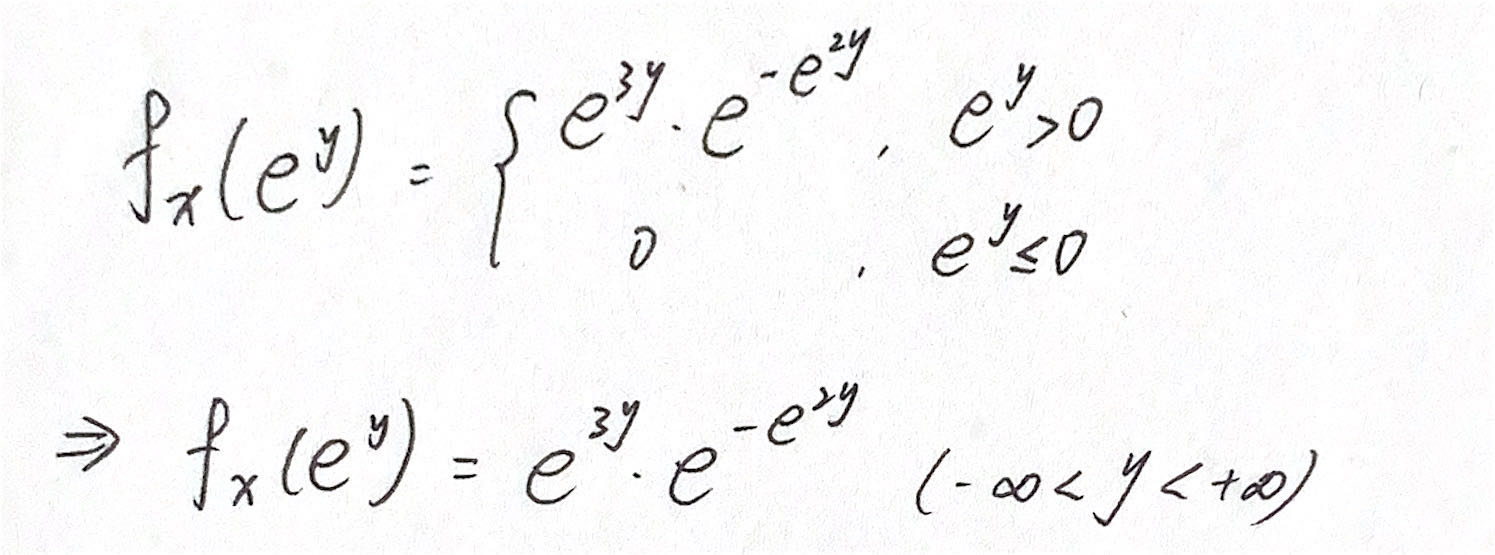 $f_x(e^y) = \begin{cases} e^{3y} \cdot e^{-e^{2y}}, & e^y > 0 \\ 0, & e^y \le 0 \end{cases}$
$\Rightarrow f_x(e^y) = e^{3y} \cdot e^{-e^{2y}} \quad (-\infty < y < +\infty)$